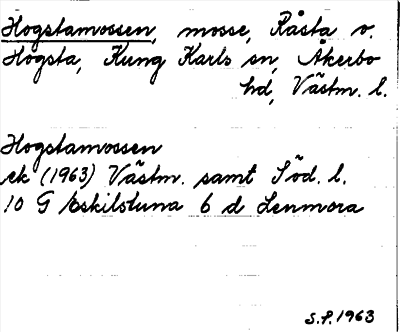 Hogstamossen, mosse, Råsta o.
Hogsta, Kung Karls sn, Åkerbo
hd, Västm. l.
Hogstamossen
ek (1963) Västm. samt Söd. l.
10 G Eskilstuna 6 d Lenmora
S.P. 1963